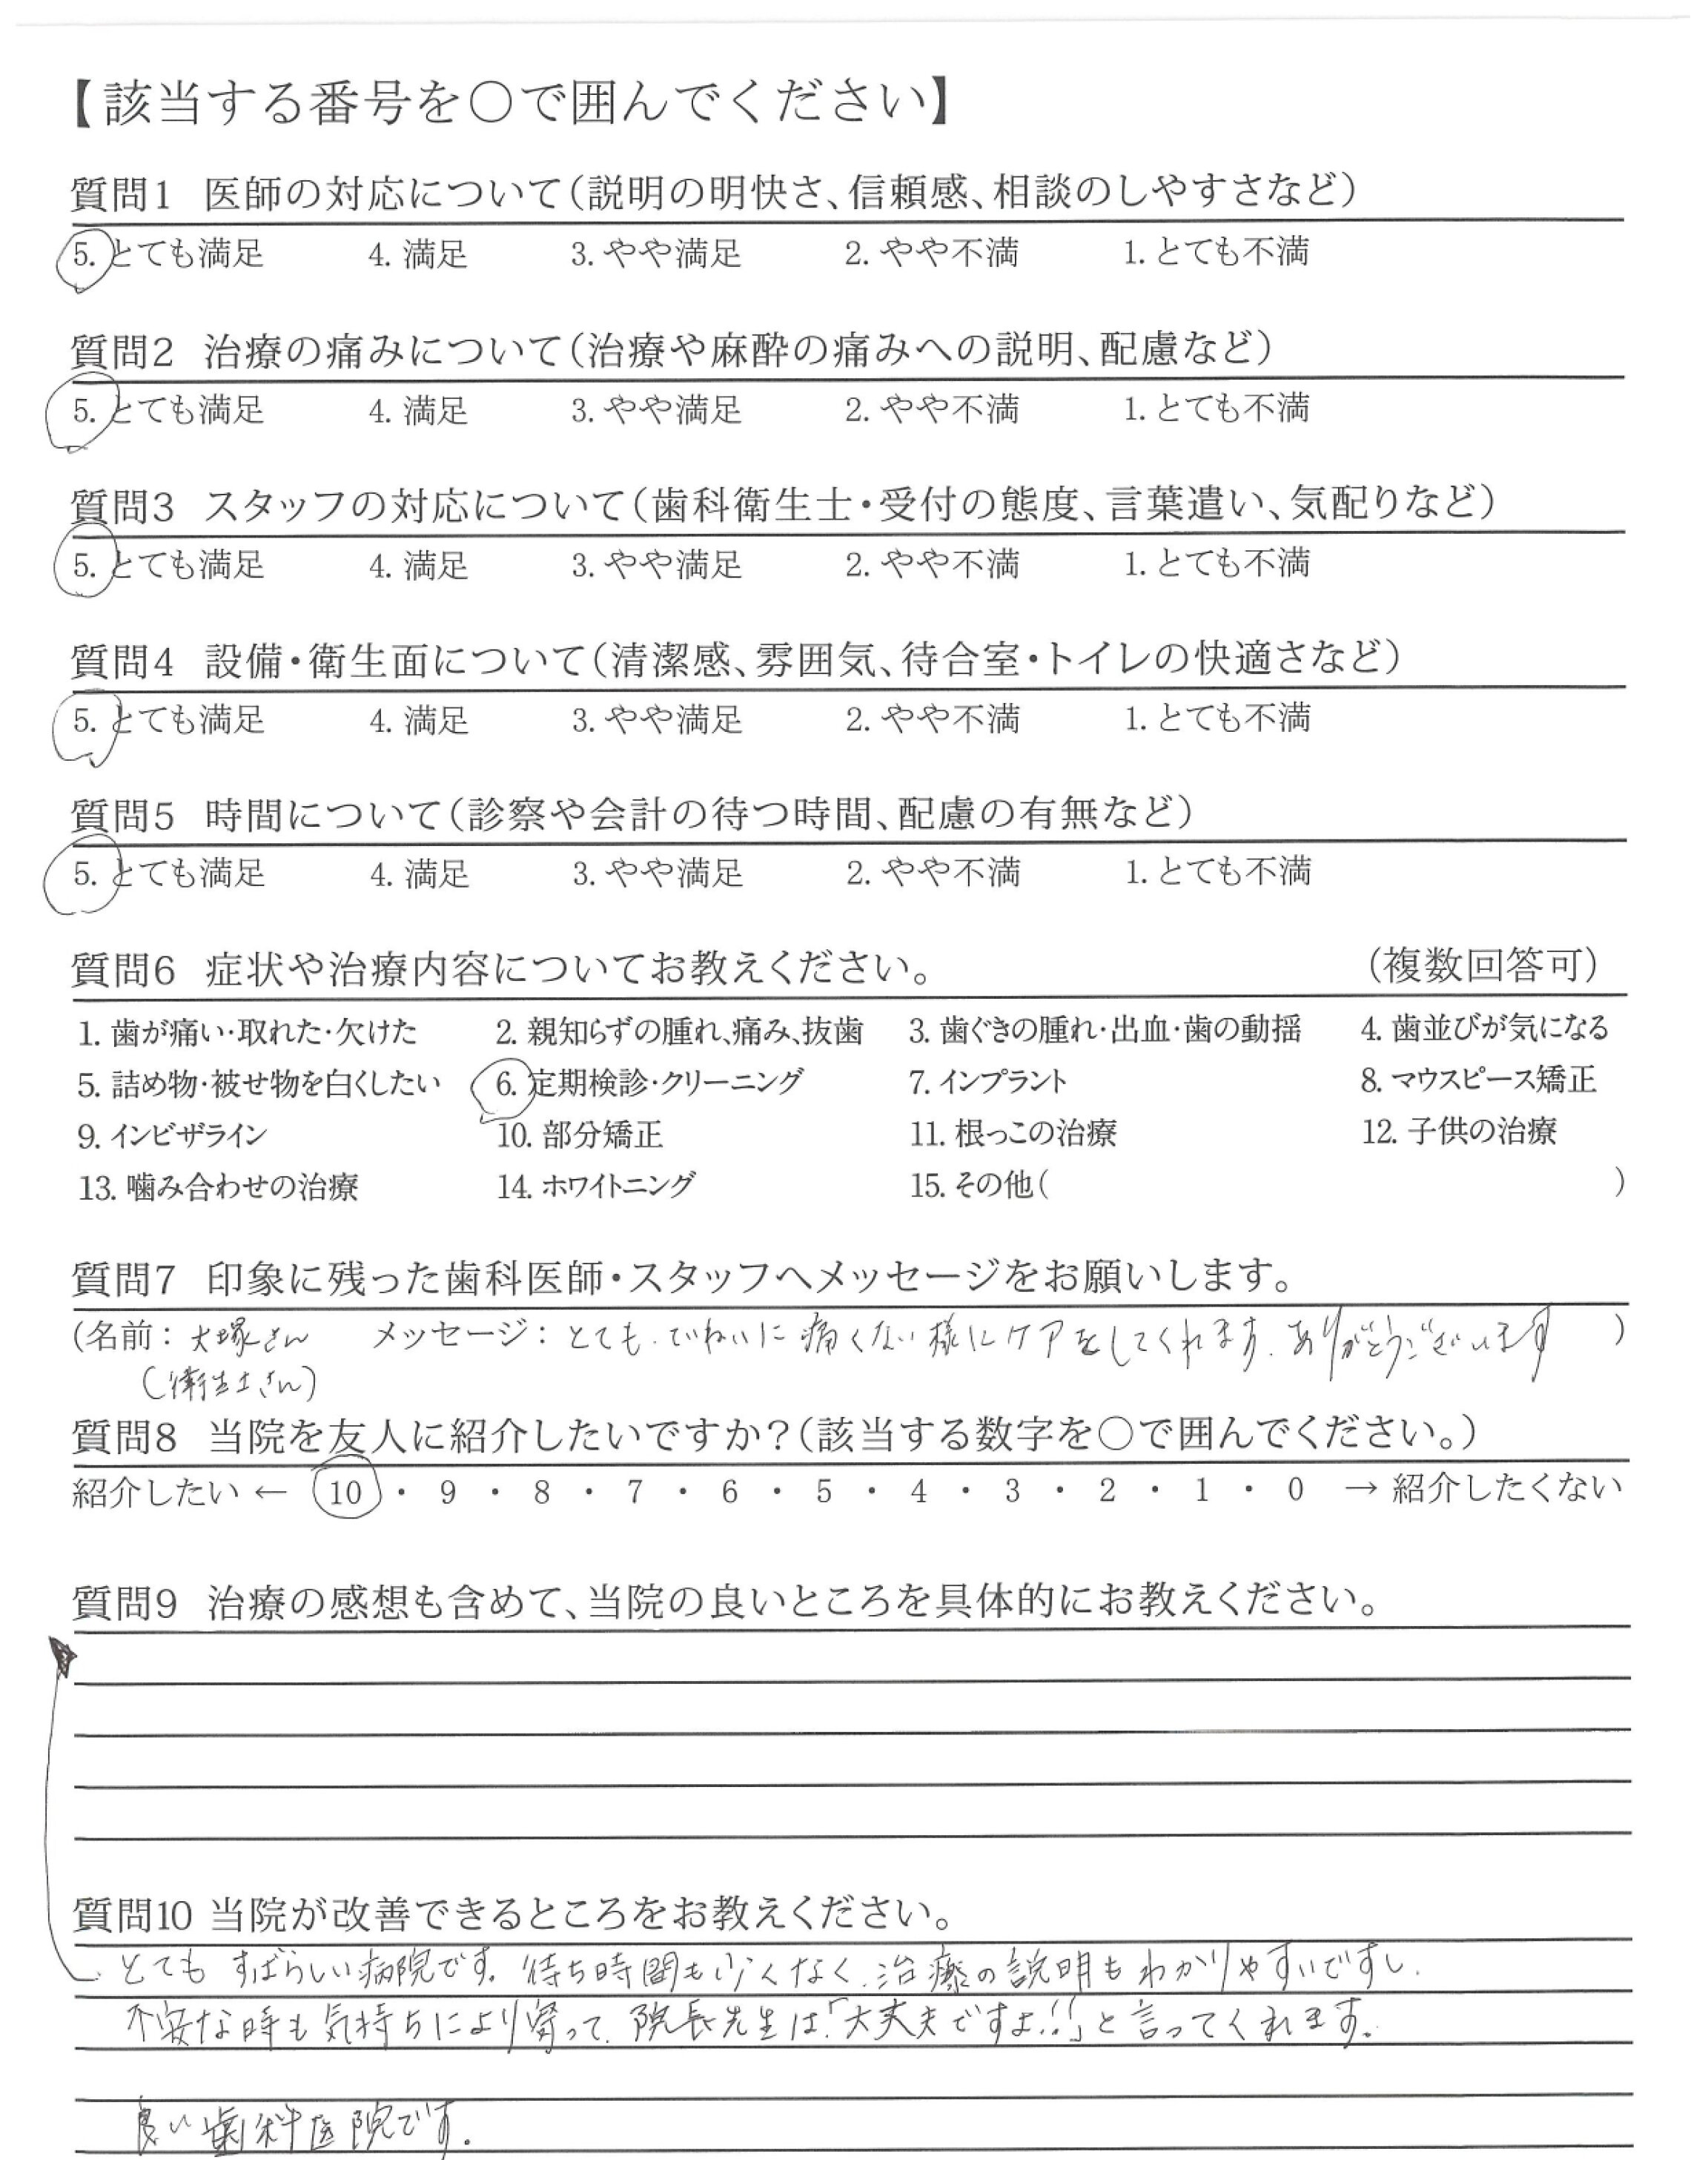 【該当する番号を〇で囲んでください】
質問1 医師の対応について(説明の明快さ、信頼感、相談のしやすさなど)
5. とても満足 4. 満足 3. やや満足 2. やや不満 1. とても不満
質問2 治療の痛みについて(治療や麻酔の痛みへの説明、配慮など)
5. とても満足 4. 満足 3. やや満足 2. やや不満 1. とても不満
質問3 スタッフの対応について(歯科衛生士・受付の態度、言葉遣い、気配りなど)
5. とても満足 4. 満足 3. やや満足 2. やや不満 1. とても不満
質問4 設備・衛生面について(清潔感、雰囲気、待合室・トイレの快適さなど)
5. とても満足 4. 満足 3. やや満足 2. やや不満 1. とても不満
質問5 時間について(診察や会計の待つ時間、配慮の有無など)
5. とても満足 4. 満足 3. やや満足 2. やや不満 1. とても不満
質問6 症状や治療内容についてお教えください。 (複数回答可)
1. 歯が痛い・取れた・欠けた 2. 親知らずの腫れ、痛み、抜歯 3. 歯ぐきの腫れ・出血・歯の動揺 4. 歯並びが気になる
5. 詰め物・被せ物を白くしたい 6. 定期検診・クリーニング 7. インプラント 8. マウスピース矯正
9. インビザライン 10. 部分矯正 11. 根っこの治療 12. 子供の治療
13. 噛み合わせの治療 14. ホワイトニング 15. その他( )
質問7 印象に残った歯科医師・スタッフへメッセージをお願いします。
(名前: 大塚さん メッセージ: とても、ていねいに痛くない様にケアをしてくれます。ありがとうございます )
(衛生士さん)
質問8 当院を友人に紹介したいですか?(該当する数字を〇で囲んでください。)
紹介したい ← 10 ・ 9 ・ 8 ・ 7 ・ 6 ・ 5 ・ 4 ・ 3 ・ 2 ・ 1 ・ 0 → 紹介したくない
質問9 治療の感想も含めて、当院の良いところを具体的にお教えください。
質問10 当院が改善できるところをお教えください。
とてもすばらしい病院です。待ち時間も少くなく、治療の説明もわかりやすいですし、
不安な時も気持ちにより寄って、院長先生は「大丈夫ですよ!!」と言ってくれます。
良い歯科医院です。